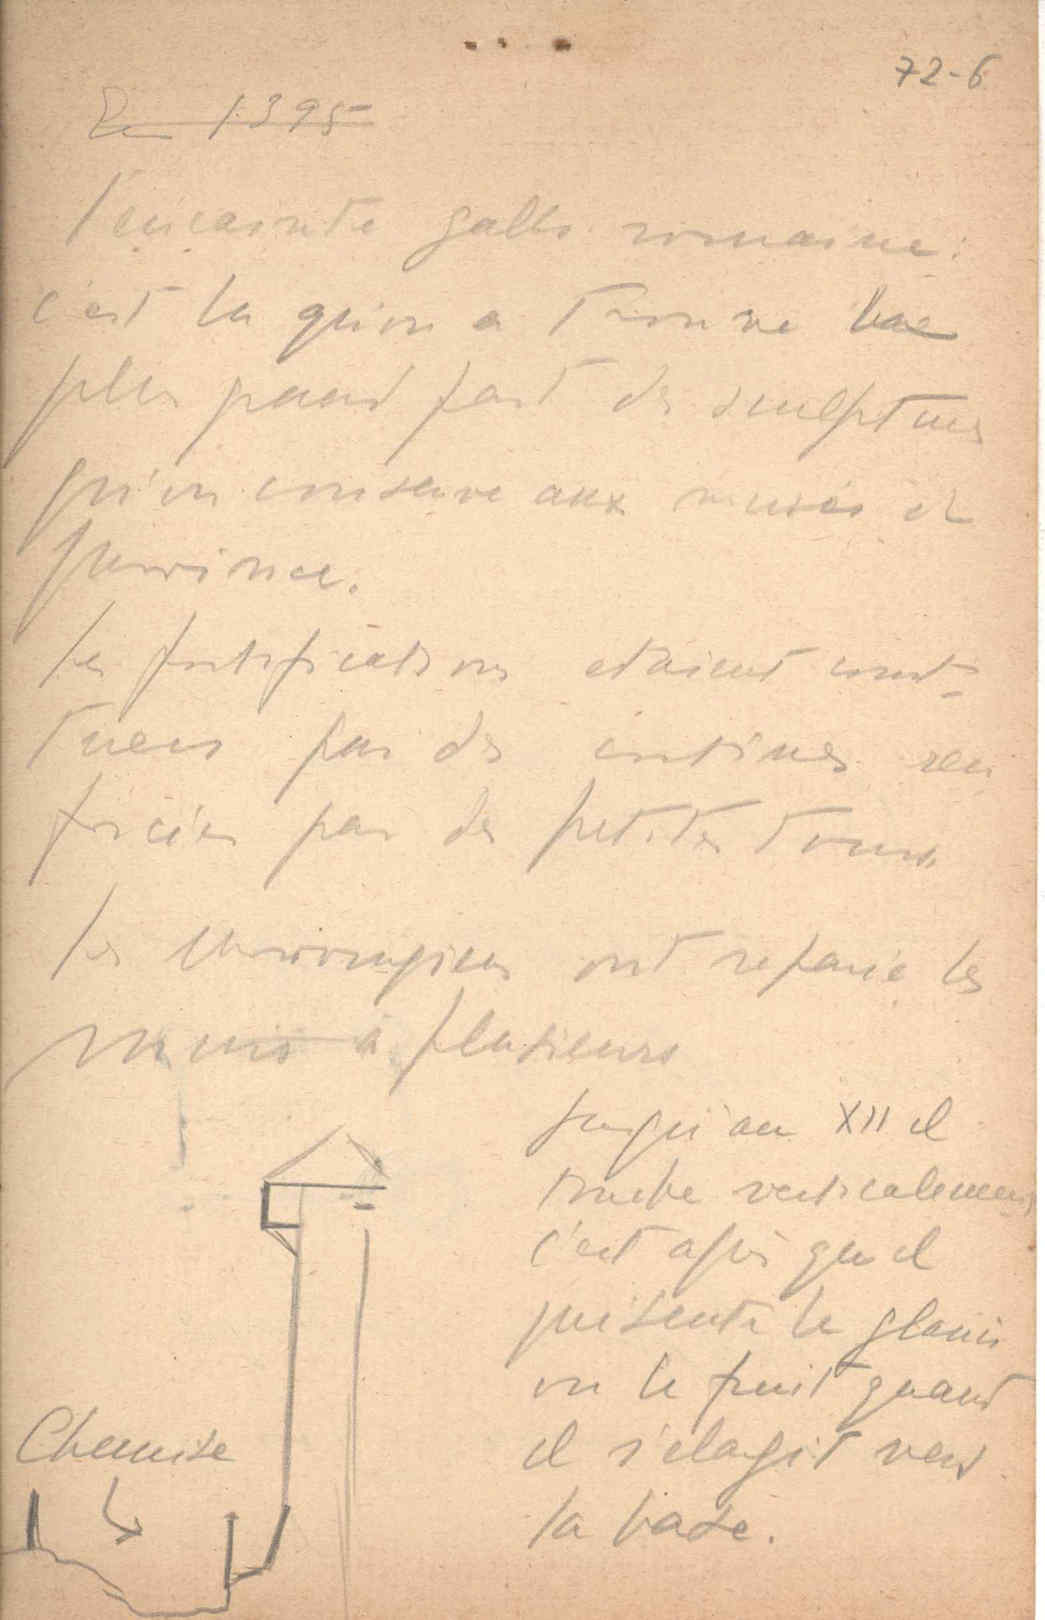 72-6
En 1395
l'encainte gallo romaine:
c'est la qu'on a trouve
plus grand part des sculptures
qu'on conserve aux musés et
province.
les fortifications etaient const-
par des ren
forcées par des petites tours
les merovingiens ont reparé les
murs à plusieurs
jusqu'au XII il
tombe verticalement
c'est après que il
présente le glacis
ou le fruit quand
il s'elargit vers
la base.
Chemise